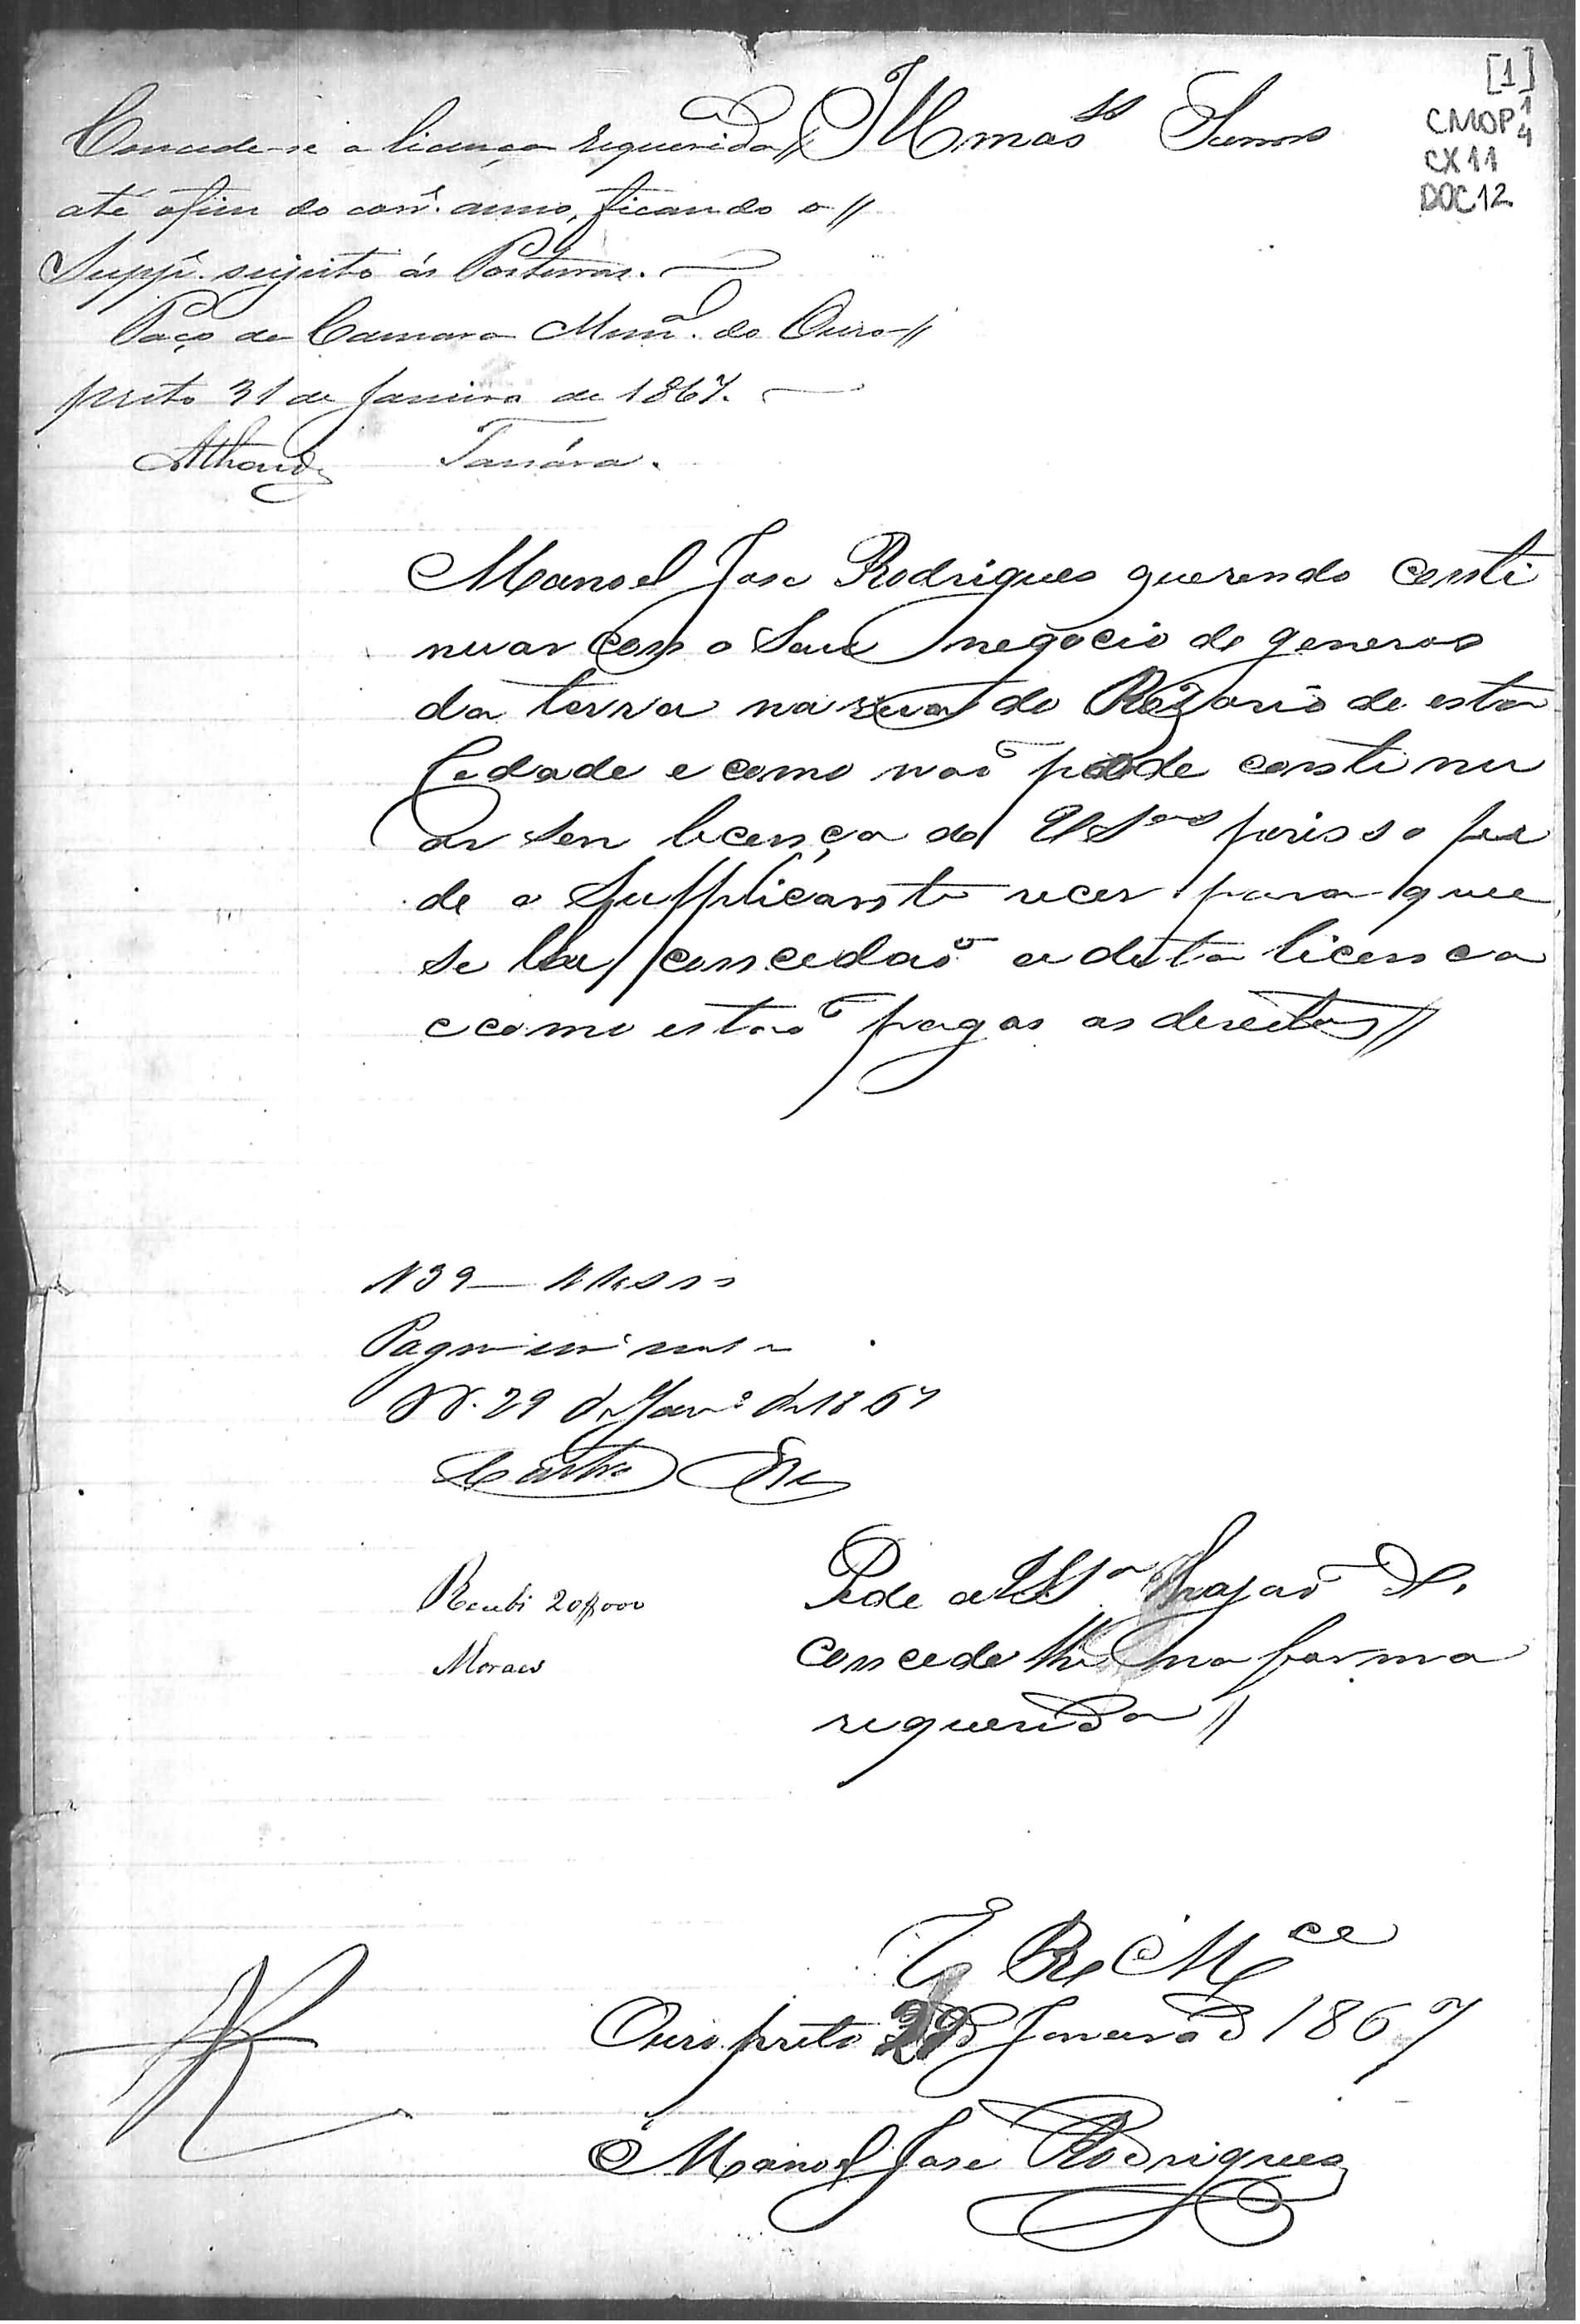 [1]
CMOP 1/4
CX11
DOC12
Concede-se a licença requerida//
até o fim do corre. anno, ficando o //
Suppe. sujeito ás Posturas.
Paço da Camara Munal. do Ouro//
preto 31 de Janeiro de 1867.
Tassára.
Illmos Senros
Manoel Jose Rodrigues querendo conti
nuar com o Seu negocio de generos
da terra na rua do Rozario desta
Cedade e como naõ pode continu
ar sem licença de VSas porisso pe
de o Supplicante para que
se lhe concedaõ a dita licenca
e como estaõ pagos os dereitos //
N39
Pagou
29 de Janro de 1867
Castro
Recebi 20$000
Moraes
Pede a VSas hajaõ De
concede lhe na forma
requerida //
E R Mce
Ouro preto 29 de Janeiro de 1867
Manoel Jose Rodrigues